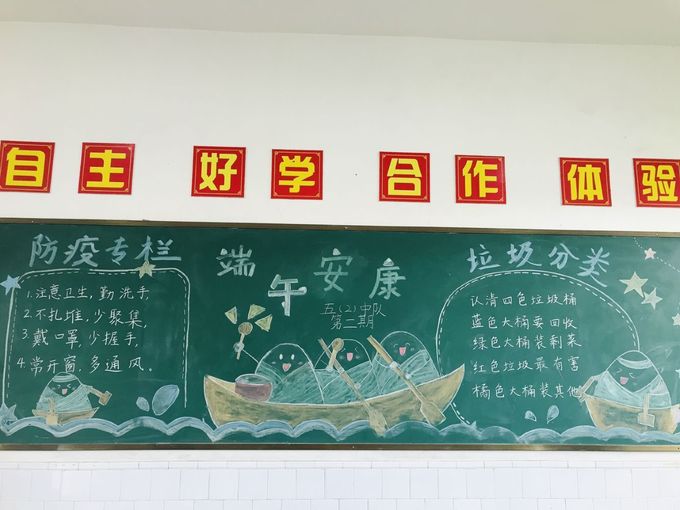 自主 好学 合作 体验
防疫专栏
1.注意卫生,勤洗手,
2.不扎堆,少聚集,
3.戴口罩,少握手,
4.常开窗,多通风。
端午安康
五(2)中队
第二期
垃圾分类
认清四色垃圾桶
蓝色大桶要回收
绿色大桶装剩菜
红色垃圾最有害
橘色大桶装其他